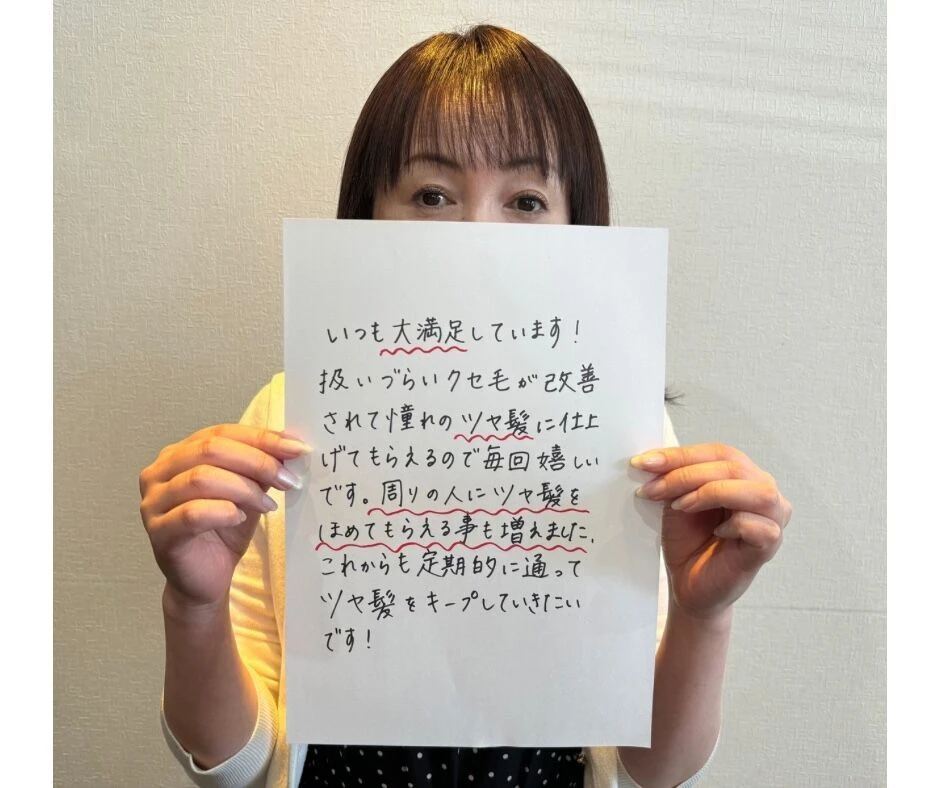 いつも大満足しています！
扱いづらいクセ毛が改善
されて憧れのツヤ髪に仕上
げてもらえるので毎回嬉しい
です。周りの人にツヤ髪を
ほめてもらえる事も増えました、
これからも定期的に通って
ツヤ髪をキープしていきたい
です！